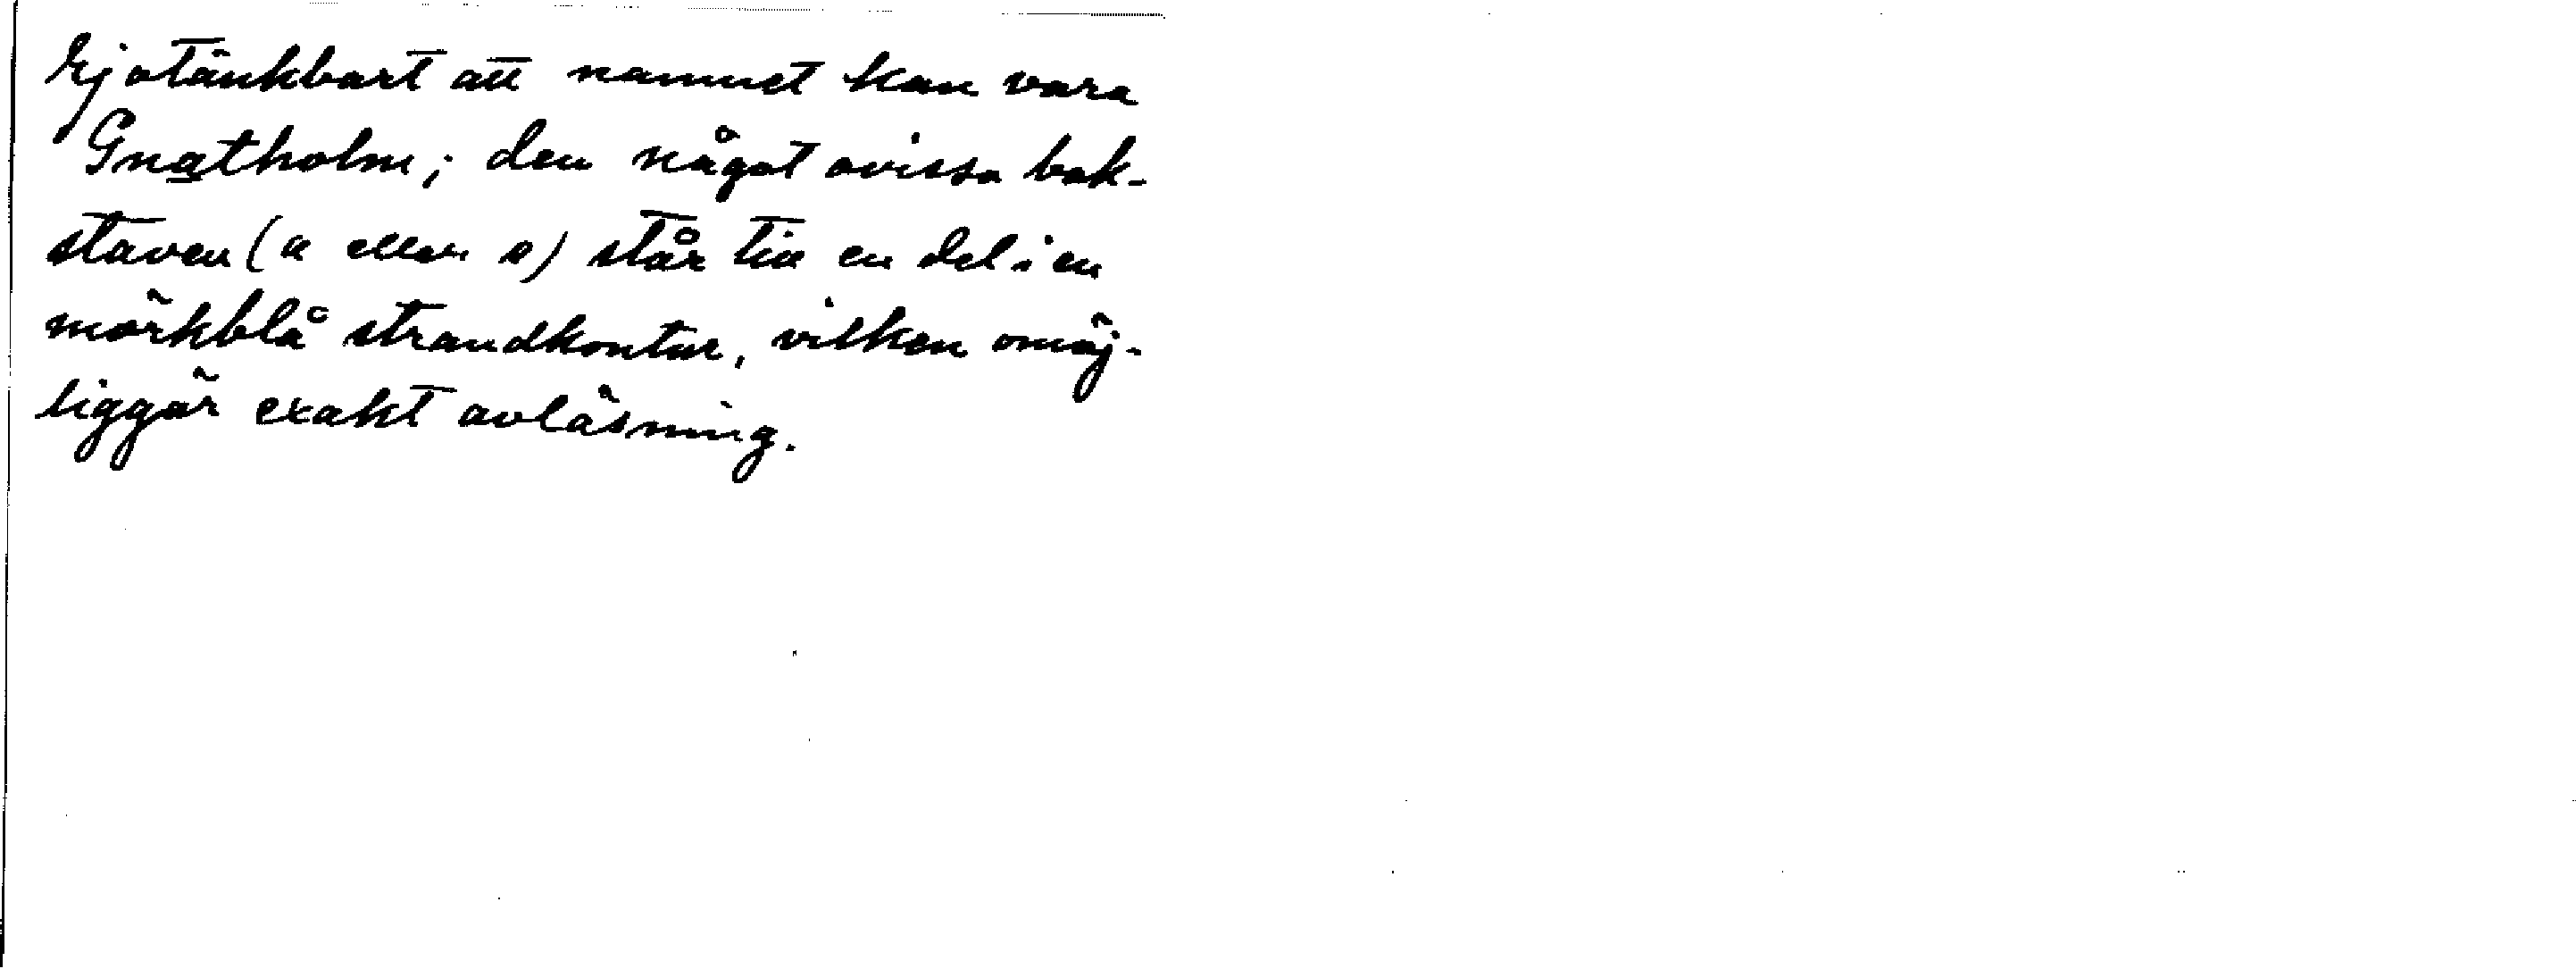 Ej otänkbart att namnet kan vara
Gnatholm; den något ovissa bok-
staven (a eller o) står till en del i en
mörkblå strandkontur, vilken omöj-
liggör exakt avläsning.